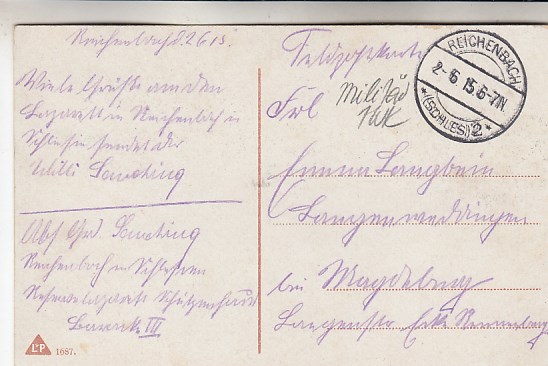 Reichenbach d. 2.6.15.
Viele Grüße aus dem
Lazarett in Reichenbach in
Schlesien sendet dir
Willi
Abs Grd.
Reichenbach in Schlesien
Reservelazarett Schützenhaus
Baracke III
L&P 1687.
Feldpostkarte
Frl
Militär
REICHENBACH
2-6 15.6-7N
*(SCHLES)2*
Emma Langbein
Langenweddingen
bei Magdeburg
Langenstr Ecke